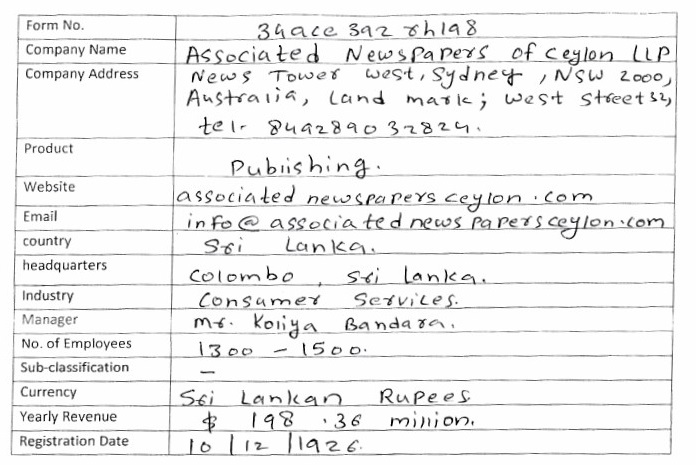 Form No. 34ace 3a2 rh1a8
Company Name Associated Newspapers of Ceylon LLP
Company Address News Tower west, Sydney, NSW 2000,
Australia, Land mark; west street 32,
tel- 8492890 32824.
Product Publishing.
Website associatednewspapersceylon.com
Email info@associatednewspapersceylon.com
country Sri Lanka.
headquarters Colombo, Sri Lanka.
Industry Consumer Services.
Manager mr. Koliya Bandara.
No. of Employees 1300 – 1500.
Sub-classification –
Currency Sri Lankan Rupees
Yearly Revenue $ 198.36 million.
Registration Date 10/12/1926.